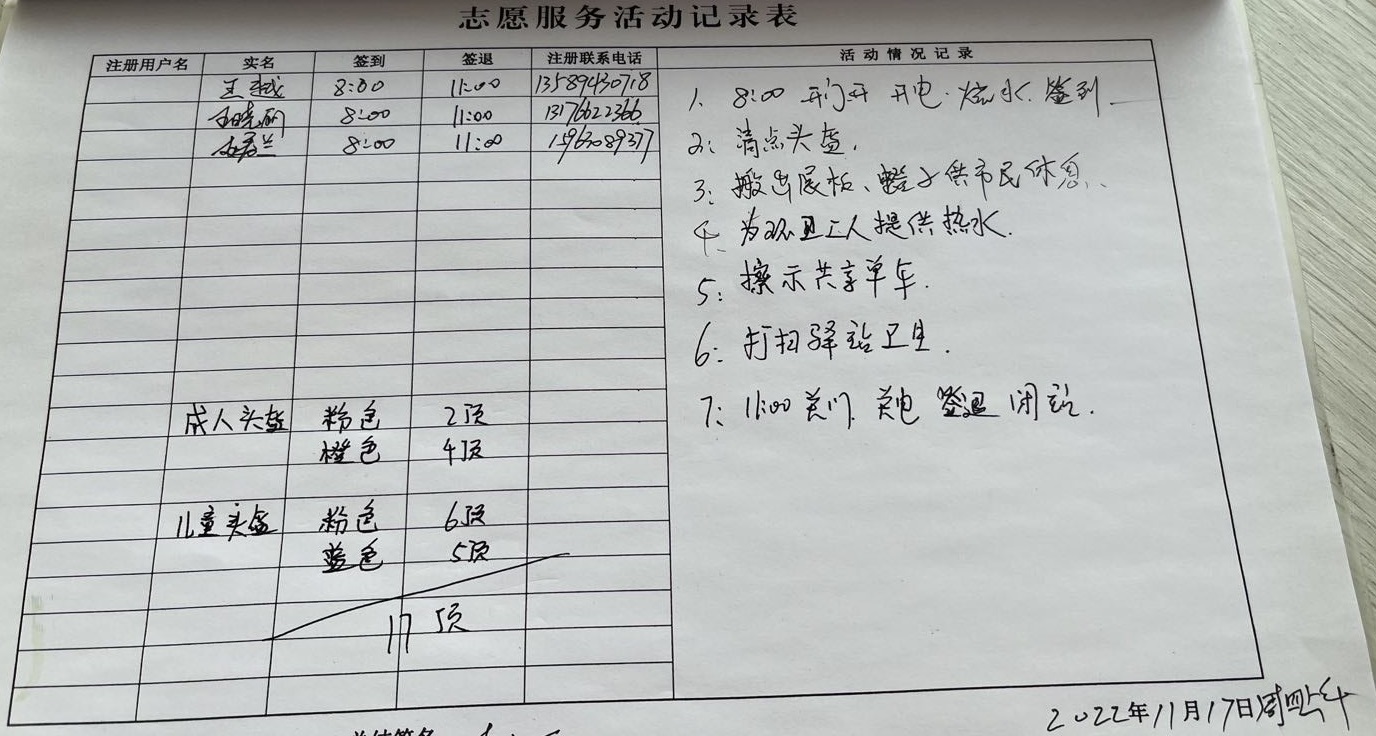 志愿服务活动记录表
注册用户名 实名 签到 签退 注册联系电话 活动情况记录
王 8:00 11:00 13589430718
8:00 11:00 13176622366
兰 8:00 11:00 15963089377
成人头盔 粉色 2顶
橙色 4顶
儿童头盔 粉色 6顶
蓝色 5顶
17顶
1、8:00 开门开 开电.烧水.签到.
2:清点头盔.
3:搬出展板、凳子供市民休息.
4、为环卫工人提供热水.
5:擦示共享单车.
6:打扫驿站卫生.
7:11:00关门.关电 签退 闭站.
2022年11月17日周四上午